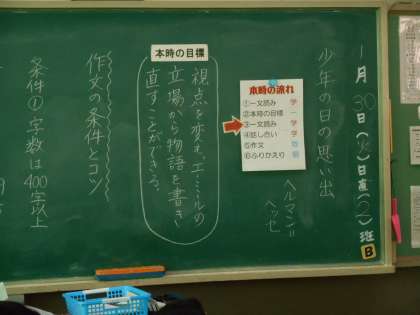 1月30日(火)日直( )班
B
少年の日の思い出
ヘルマン=
ヘッセ
本時の流れ
①一文読み 学
②本時の目標 一
③一文読み 学
④話し合い 学
⑤作文
⑥ふりかえり 個
本時の目標
視点を変え、エーミールの
立場から物語を書き
直すことができる。
作文の条件とコツ
条件① 字数は400字以上